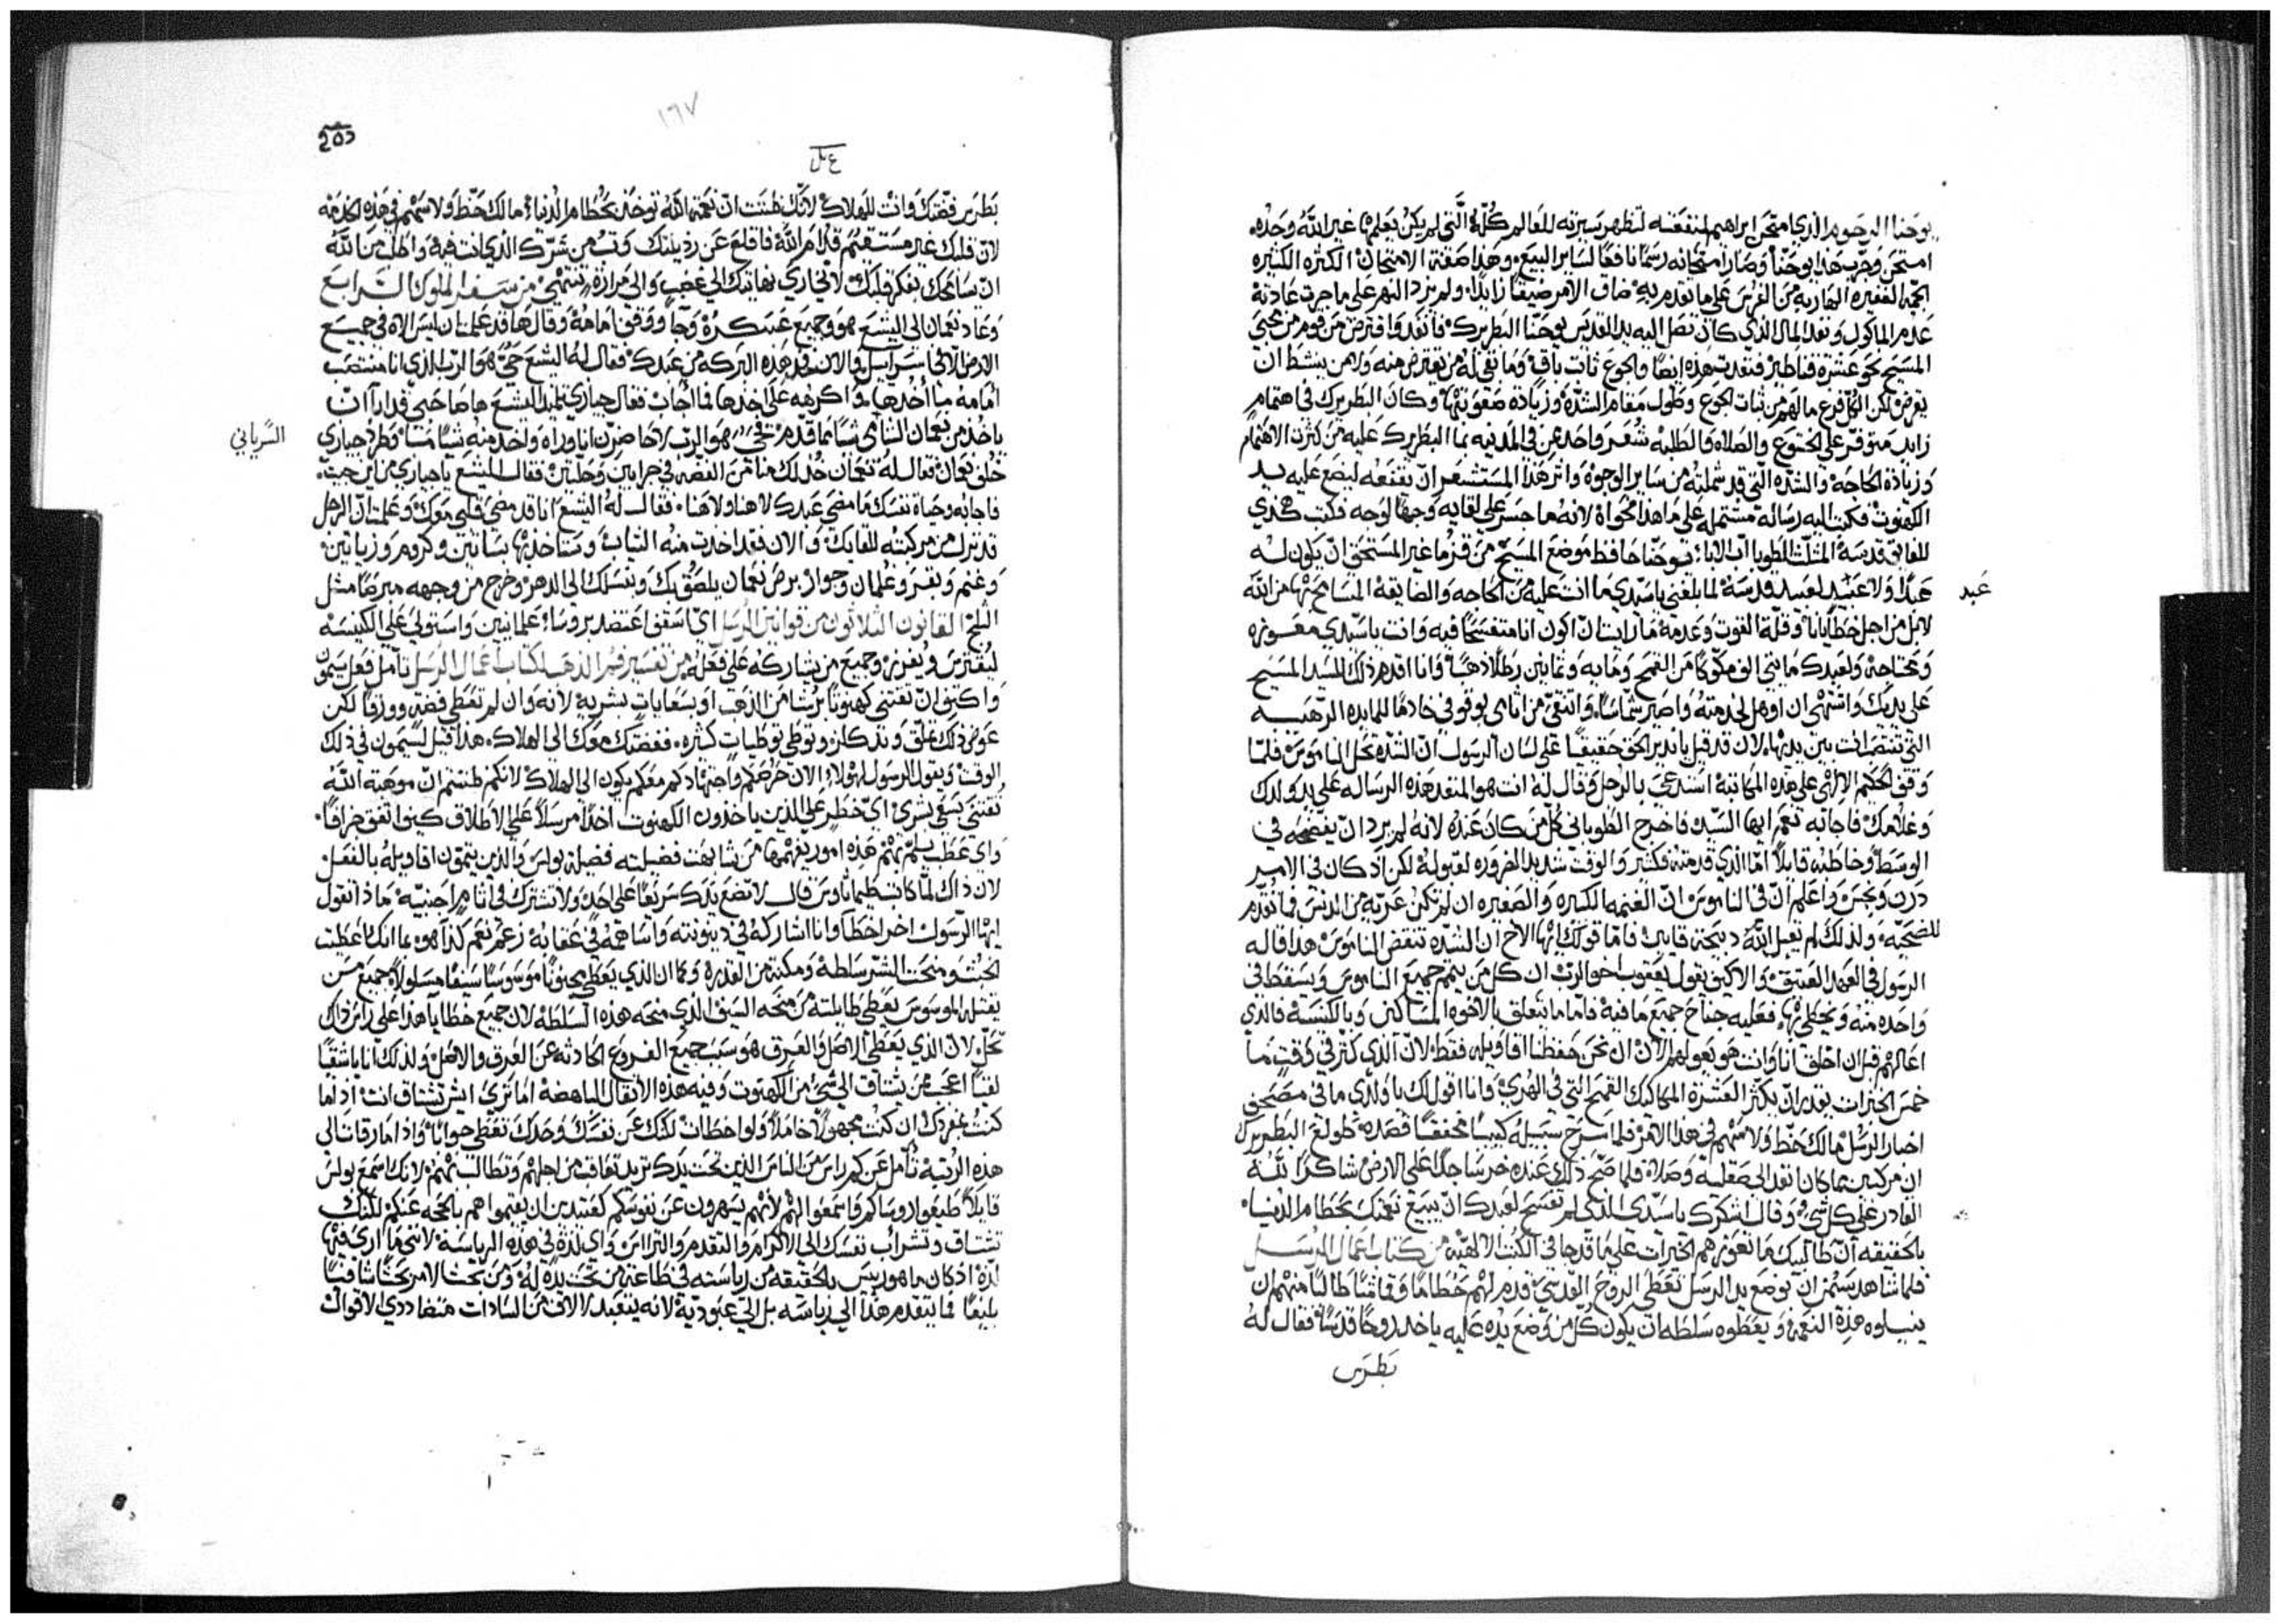 يوحنا الرحوم الذي امتحن ابراهيم لمنفعته لتظهر سيرته للعالم كله التي لم يكن يعلمها غير الله وحده
امتحن وجرب هذا يوحنا وصار امتحانه رسمًا نافعًا لساير البيع وهذا صفة الامتحان الكثره الكثيره
الجمه الغفيره الهاربه من الفرس على ما تقدم به ضاق الامر ضيقًا زايدًا ولم يزد النهر على ما جرت عادته
عدم الماكول ونفد المال الذي كان تصل اليه يد القديس يوحنا البطريرك فانفد واقترض من قوم من محبي
المسيح نحو عشرة قناطير فنفدت هذه ايضًا والجوع ثابت باق وما بقي له من يقترض منه ولا من ينشط ان
يقرض لكن الكل فزع مالهم من ثبات الجوع وطول مقام الشدة وزيادة صعوبتها وكان البطريرك في اهتمام
زايد متوفر على الخشوع والصلاه والطلبه شعر واحد من في المدينه بما البطريرك عليه من كثرة الاهتمام
وزيادة الحاجه والشده التي قد شملته من ساير الوجوه واثر هذا المستشعر ان يقنعه ليضع عليه يد
الكهنوت فكتب اليه رسالة مشتمله على ما هذا فحواه لانه ما جسر على لقايه وجهًا لوجه فكتب هكذي
للفايق قدسه المثلث الطوبا اب الابا يوحنا حافظ موضع المسيح من قزما غير المستحق ان يكون له
عبدًا ولا عبيد لعبيد قدسه لما بلغني يا سيدي ما انت عليه من الحاجه والضايقة المسامح بها من الله
لا بل من اجل خطايانا وقلة القوت وعدمه ما رايت ان اكون انا متفسحًا فيه وانت يا سيدي معوزه
ومحتاجه ولعبدك مايتي الف مكوكًا من القمح ومايه وثمانين رطلا ذهبًا وانا اقدم ذلك للسيد المسيح
على يديك واشتهي ان اوهل لخدمته واصير شماسًا وانتقي من اثامي بوقوفي خادمًا للمايده الرهبه
التي تنتصب انت بين يديها لان قد قيل يا نذير الحق حقيقًا على لسان الرسول ان الشده تحل الناموس فلما
وقف الحكيم الالهي على هذه المكاتبة استدعى بالرجل وقال له انت هو المنفد هذه الرساله على يد ولدك
وغلامك فاجابه نعم ايها السيد فاخرج الطوباني كل من كان عنده لانه لم يرد ان يفضحه في
الوسط وخاطبه قايلاً امّا الذي قدمته فكثير والوقت شديد الضروره لقبوله لكن اذ كان في الامر
درن ونجس واعلم ان في الناموس ان الغنمه الكبيره والصغيره ان لم تكن عريّه من الدنس فما تقدم
للضحيّه ولذلك لم تقبل الله ذبيحة قايين فاما قولك ايها الاخ ان الشده تنقض الناموس هذا قاله
الرسول في العهد العتيق والا كيف يقول يعقوب اخو الرب ان كل من يتمم جميع الناموس ويسقط في
واحده منه ويخطي بها فعليه جناح جميع ما فيه فاما ما يتعلق بالاخوه المساكين وبالكنيسة فالذي
اعالهم قبل ان اخلق انا وانت هو يعولهم الان ان نحن حفظنا اقاويله فقط لان الذي كثر في وقتٍ ما
خمس الخبزات يقدر ان يكثر العشره المكاكيك القمح التي في الهري وانا اقول لك يا ولدي ما في مصحف
اخبار الرسل مالك حظ ولا سهم في هذا الامر فلما سرح سبيله كييبًا مخفقًا قصده طولع البطريرك
ان مركبين مما كان نفد الى صقلية وصلا فلما صح ذلك عنده خر ساجدًا على الارض شاكرًا لله
القادر على كل شي وقال اشكرك يا سيدي الذي لم تفسح لعبدك ان يبيع نعمتك بحطام الدنيا
بالحقيقه ان طالبيك ما تعوزهم الخيرات على ما قد جا في الكتب الالهيه من كتاب اعمال الرسل
فلما شاهد سيمن ان بوضع يد الرسل تعطي الروح القدس قدم لهم حطامًا وقامًا طالبًا منهم ان
ينيلوه هذه النعمة ويعطوه سلطه ان يكون كل من وضع يده عليه ياخد روحًا قدسًا فقال له
بطرس
عبد
٢٥٥
١٩٧
بطرس فضتك وانت للهلاك لانك ظننت ان نعمة الله توخد بحطام الدنيا مالك حظ ولا سهم في هذه الخدمه
لان قلبك غير مستقيم قدام الله فاقلع عن رذيلتك وتب من شرك الذي انت فيه واطلب من الله
ان سامحك بفكر قلبك من سفر الملوك الرابع
وعاد نعمان الى اليشع هو وجميع عسكره وجا ووقف امامه وقال ها قد علمت ان ليس الاه في جميع
الارض الا في اسراييل والان خد هذه البركه من عبدك فقال له اليشع حي هو الرب الذي انا منتصب
امامه ما اخدها واكرهه على اخدها فما اجاب فقال جيازي تلميد اليشع هاهنا صاحبي قد ارا ان
ياخد من نعمان الشامي شيًا مما قدم حي هو الرب لاحاضرن انا وراه واخد منه شيًا مّا فطرد جيازي
السّرياني
خلف نعمان فقال له نعمان خد لك هنا من الفضه في جرابين وحلتين فقال اليشع يا جيازي من اين جيت
فاجابه وحياة نفسك ما مضي عبدك لا هنا ولا هنا فقال له اليشع انا قد مضي قلبي معك وعلمت ان الرجل
قد نزل من مركبته للقايك والان فقد اخدت منه الثياب وستاخد بها بساتين وكروم وزياتين
وغنم وبقر وغلمان وجوار برص نعمان يلصق بك وبنسلك الى الدهر وخرج من وجهه مبرصًا مثل
الثلج القانون الثلاثون من قوانين الرسل اي اسقف اعتضد بروسا علمانيين واستولي على الكنيسه
ليفترس ويفرز وجميع من يشاركه على فعله من تفسير فم الذهب لكتاب اعمال الرسل تامل فعل سيمون
واكتف ان تقتني كهنوتًا برشا من الذهب او بسعايات بشريه لانه وان لم تعطي فضه وورقًا لكن
عوض ذلك تملق وتدكلز وتوطي توطيات كثيره ففضتك معك الى الهلاك هذا قيل لسيمون في ذلك
الوقت ويقول الرسول لهولا الان حرضكم واجتهادكم معكم يكون الى الهلاك لانكم ظننتم ان موهبة الله
تقتني بسعي بشري اي خطر على الذين ياخذون الكهنوت اخدًا مرسلاً على الاطلاق كيف اتفق جزافًا
لان ذاك لما كاتب طيماثاوس قال لا تضع يدك سريعًا على احد ولا تشترك في اثام اجنبيه ماذا تقول
ايها الرسول اخر اخطا وانا اشاركه في دينونته واساهمه في عقابه زعم نعم كذا هو بما انك اعطيت
الخبث ومنحت الشر سلطة ومكنة من القدره وكما ان الذي يعطي مجنونًا موسوسًا سيفًا مسلولا جميع من
يقتله الموسوس يعطي طايلته من منحه السيف الذي منحه هذه السلطه لان جميع خطايا هذا على راس ذاك
تحل لان الذي يعطي الاصل والعرق هو سبب جميع الفروع الحادثه عن العرق والاصل ولذلك انا باشقًا
لفيًا اعجب من يشتاق الى شي من الكهنوت وفيه هذه الاثقال الباهضة اما تري ايش تشتاق انت اذ اما
كنت بمفردك ان كنت مجهولاً خاملاً ولو اخطات لكنك عن نفسك وحدك تعطي جوابًا واذا ما رقيت الى
هذه الرتبه تامل عن كم راس من الناس الذين تحت يدك تريد تعاقب من اجلهم وتطالب بهم لانك اسمع بولس
قايلاً طيعوا روساكم واسمعوا لهم لانهم يسهرون عن نفوسكم كمعتدين ان يقيموا هم بالحجه عنكم لكنك
تشتاق وتشراب نفسك الى الاكرام والتقدم والتراس واي لذة في هذه الرياسة لانني ما اري فيها
لذة اذ كان ما هو رييس بالحقيقه من رياسته في طاعة من تحت يده له ومن بحث الامر بحثًا شافيًا
بليغًا فما يتقدم هذا الى رياسه بل الى عبودية لانه يتعبد لالاف من السادات متضاددي الاقوال